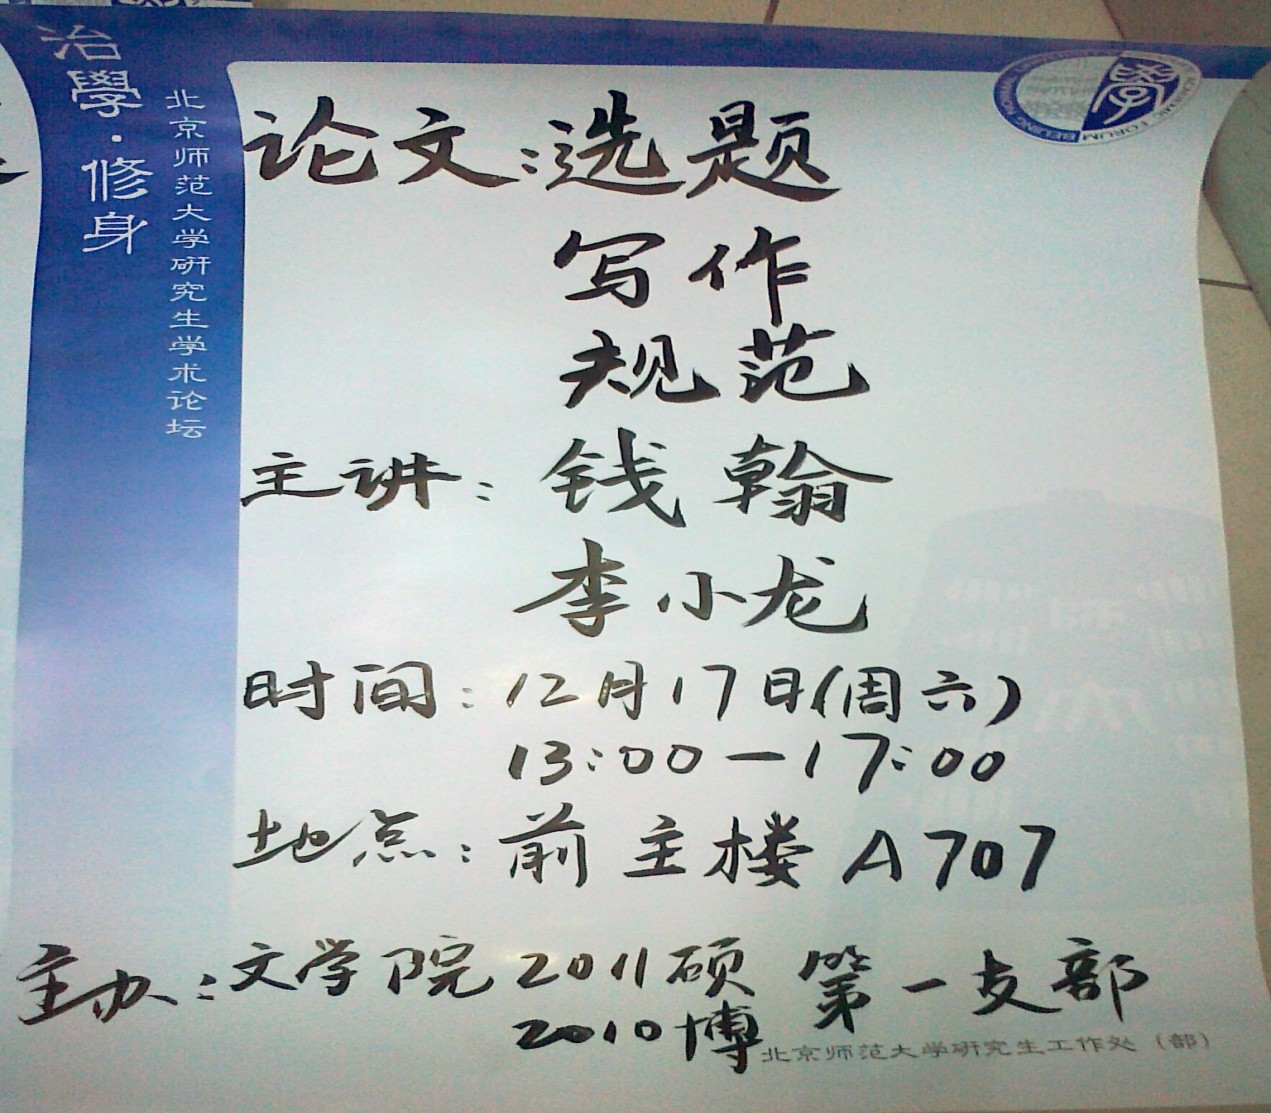 治學·修身
北京师范大学研究生学术论坛
學
论文:选题
写作
规范
主讲:钱翰
李小龙
时间:12月17日(周六)
13:00—17:00
地点:前主楼A707
主办:文学院2011硕 第一支部
2010博
北京师范大学研究生工作处（部）